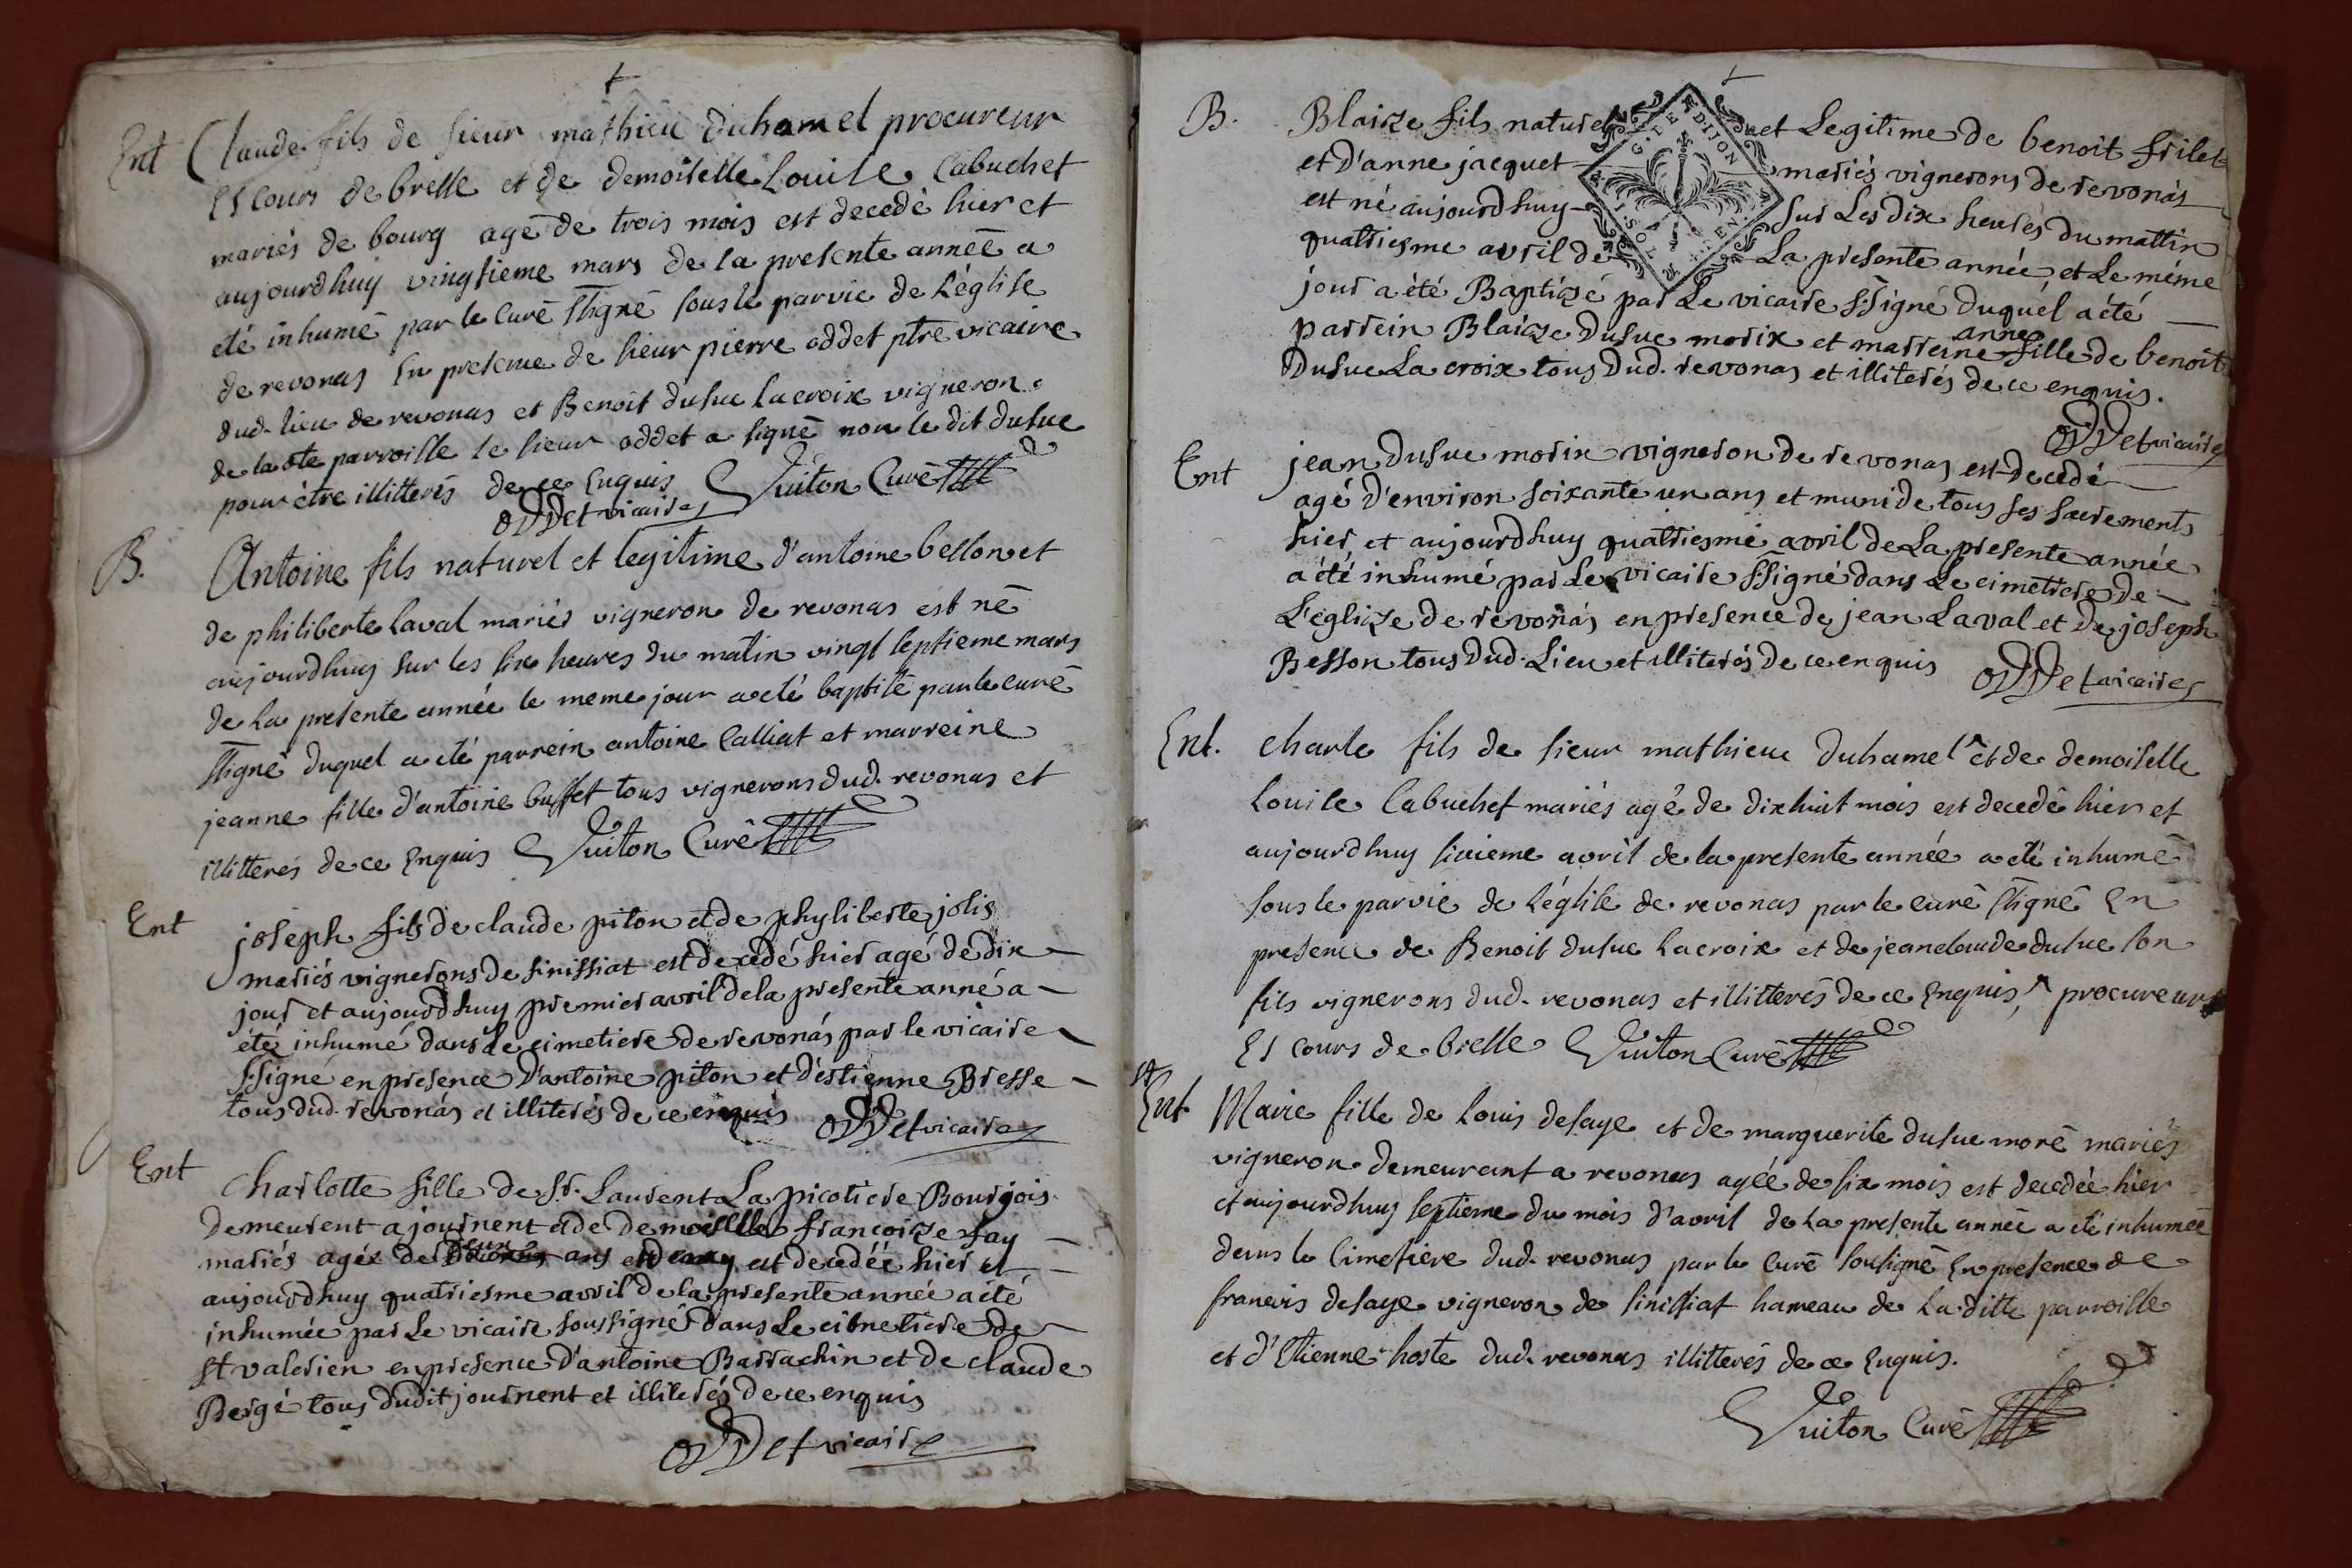 Ent Claude fils de sieur mathieu duhamel procureur
Es cours de bresse et de demoiselle Louise Cabuchet
mariés de bourg agé de trois mois est decedé hier et
aujourdhuy vingtieme mars de la presente année a
eté inhumé par le curé ssigné sous le parvie de l'église
de revonas En presence de sieur pierre oddet ptre vicaire
dud. lieu de revonas et Benoit dusuc lacroix vigneron
de la dte parroisse le sieur oddet a signé non le dit dusuc
pour être illitterés de ce Enquis Guiton Curé
oDDet vicaire
B. Antoine fils naturel et legitime d'antoine besson et
de philiberte laval mariés vigneron de revonas est né
aujourdhuy sur les six heures du matin vingt septieme mars
de la presente année le meme jour a eté baptisé par le curé
ssigné duquel a eté parrein antoine Calliat et marreine
jeanne fille d'antoine buffet tous vignerons dud. revonas et
illitterés de ce Enquis Guiton Curé
Ent joseph fils de claude piton et de phyliberte jolis
mariés vignerons de sinissiat est decedé hier agé de dix
jour et aujourdhuy premier avril de la presente anné a
été inhumé dans le cimetiere de revonás par le vicaire
ssigné en presence d'antoine piton et d'éstienne Bresse
tous dud. revonás et illiterés de ce enquis oDDet vicaire
Ent Charlotte fille de Sr. Laurent La picotiere Bourgois
demeurent a journent et de demoiselle françoize fay
mariés agée de deux ans est decedée hier et
aujourdhuy quatriesme avril de la presente année a été
inhumée par Le vicaire soussigné dans Le cimetiere de
st valerien en presence d'antoine Barrachin et de claude
Bergé tous dudit journent et illiterés de ce enquis
oDDet vicaire
B. Blaize fils naturel et Legitime de benoit frilet
et d'anne jacquet mariés vignerons de revonás
est né aujourdhuy sur Les dix heures du mattin
quattriesme avril de La presente année et Le méme
jour a été Baptizé par Le vicaire ssigné duquél a été
parrein Blaize dusuc morix et marreine anne fille de benoit
Dusuc La croix tous dud. revonas et illiterés de ce enquis.
oDDet vicaire
Ent jean dusuc morix vigneron de revonas est decedé
agé d'environ soixante un ans et muni de tous ses sacrements
hier et aujourdhuy quattriesme avril de La presente année
a été inhumé par Le vicaire ssigné dans Le cimettiere de
L'eglize de revonás en presence de jean Laval et de joseph
Besson tous dud. Lieu et illiterés de ce enquis oDDet vicaire
Ent. charle fils de sieur mathieu duhamel ^ et de demoiselle
Louise Cabuchet mariés agé de dixhuit mois est decedé hier et
aujourdhuy sixieme avril de la presente année a eté inhumé
sous le parvie de l'église de revonas par le curé ssigné En
presence de Benoit dusuc Lacroix et de jeanclaude dusuc son
fils vignerons dud. revonas et illitterés de ce Enquis, ^ procureur
Es cours de bresse Guiton Curé
Ent Marie fille de Louis desaye et de marguerite dusuc moré mariés
vigneron demeurant a revonas agée de six mois est decedée hier
et aujourdhuy septieme du mois d'avril de La presente année a eté inhumée
dans le Cimetiere dud. revonas par le curé sousigné En presence de
francois desaye vigneron de sinissiat hameau de La ditte parroisse
et d'Etienne hoste dud. revonas illitterés de ce Enquis.
Guiton Curé
G. LEN DIJON